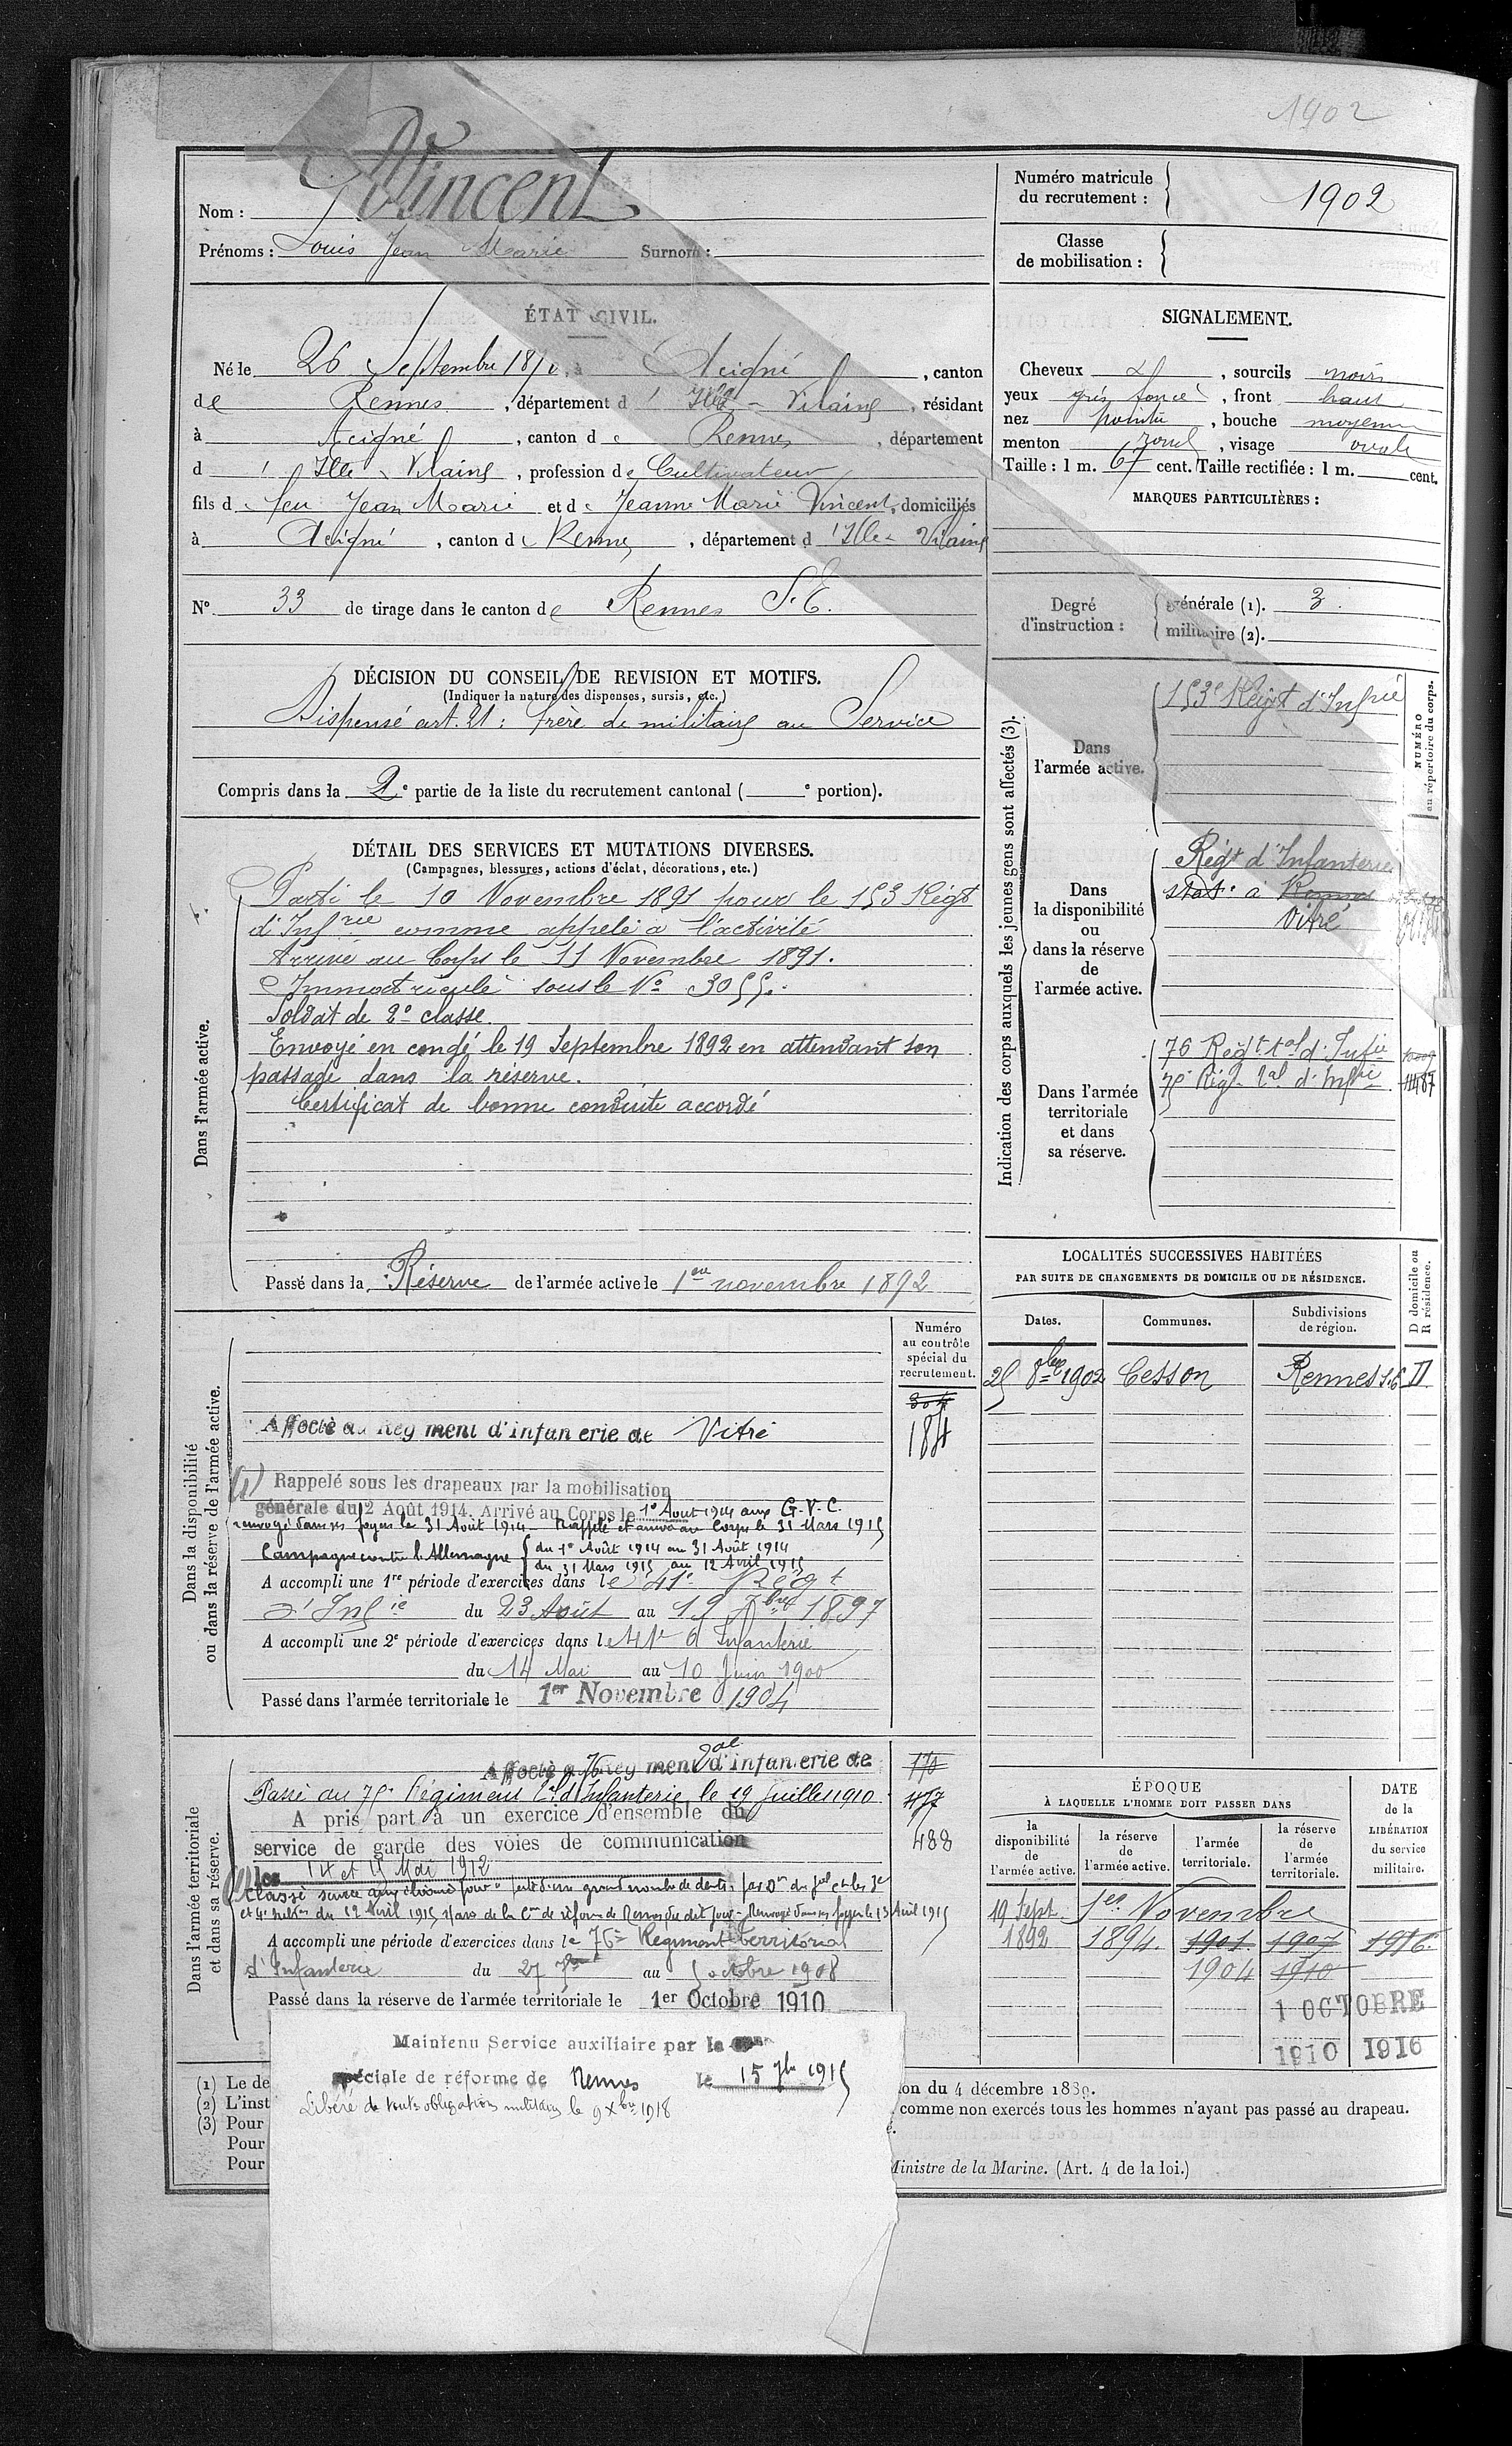 1902
Nom : Vincent
Prénoms : Louis Jean Marie Surnom :
Numéro matricule du recrutement : 1902
Classe de mobilisation :
ÉTAT CIVIL.
Né le 26 Septembre 1870, à Acigné, canton
de Rennes, département d'Ille-Vilaine, résidant
à Acigné, canton de Rennes, département
d'Ille & Vilaine, profession de Cultivateur
fils de feu Jean Marie et de Jeanne Marie Vincent, domiciliés
à Acigné, canton de Rennes, département d'Ille-Vilaine
N° 33 de tirage dans le canton de Rennes S.E.
SIGNALEMENT.
Cheveux d, sourcils noirs
yeux gris foncé, front haut
nez pointu, bouche moyenne
menton rond, visage ovale
Taille : 1 m. 67 cent. Taille rectifiée : 1 m. cent.
MARQUES PARTICULIÈRES :
Degré d'instruction : générale (1). 3.
militaire (2).
DÉCISION DU CONSEIL DE REVISION ET MOTIFS.
(Indiquer la nature des dispenses, sursis, etc.)
Dispensé art. 21 : frère de militaire au Service
Compris dans la 2e partie de la liste du recrutement cantonal ( e portion).
DÉTAIL DES SERVICES ET MUTATIONS DIVERSES.
(Campagnes, blessures, actions d'éclat, décorations, etc.)
Dans l'armée active.
Parti le 10 Novembre 1891 pour le 153 Régt
d'Infrie comme appelé à l'activité
Arrivé au Corps le 11 Novembre 1891.
Immatriculé sous le N° 3055.
Soldat de 2e classe.
Envoyé en congé le 19 Septembre 1892 en attendant son
passage dans la réserve.
Certificat de bonne conduite accordé
Passé dans la Réserve de l'armée active le 1er novembre 1892
Indication des corps auxquels les jeunes gens sont affectés (3).
NUMÉRO au répertoire du corps.
Dans l'armée active.
153e Régt d'Infrie
Dans la disponibilité ou dans la réserve de l'armée active.
Régt d'Infanterie
stat. à Rennes
Vitré
Dans l'armée territoriale et dans sa réserve.
76 Régt tal d'Infie
75e Régt tal d'Infie 11487
LOCALITÉS SUCCESSIVES HABITÉES
PAR SUITE DE CHANGEMENTS DE DOMICILE OU DE RÉSIDENCE.
Dates. Communes. Subdivisions de région. D domicile ou R résidence.
25 8bre 1902 Cesson Rennes S.E D
Dans la disponibilité ou dans la réserve de l'armée active.
Numéro au contrôle spécial du recrutement.
304
184
Affecté au Régiment d'infanterie de Vitré
(1) Rappelé sous les drapeaux par la mobilisation
générale du 2 Août 1914. Arrivé au Corps le 1er Août 1914 aux G.V.C.
renvoyé dans ses foyers le 31 Août 1914 - Rappelé et arrivé au Corps le 31 Mars 1915
Campagne contre l'Allemagne { du 1er Août 1914 au 31 Août 1914
du 31 Mars 1915 au 12 Avril 1915
A accompli une 1re période d'exercices dans le 41e Régt
d'Infie du 23 Août au 19 7bre 1897
A accompli une 2e période d'exercices dans le 41e d'Infanterie
du 14 Mai au 10 Juin 1900
Passé dans l'armée territoriale le 1er Novembre 1904
Dans l'armée territoriale et dans sa réserve.
Affecté au 76 Régiment tal d'infanterie de 170
Passé au 75e Régiment tal d'Infanterie le 19 Juillet 1910 477
A pris part à un exercice d'ensemble du
service de garde des voies de communication 488
les 14 et 15 Mai 1912
(1) Classé service auxiliaire pour perte d'un grand nombre de dents, par Don du Gal Ct les 3e
et 4e subons du 12 Avril 1915 Com de réforme de Rennes du dit jour - Renvoyé dans ses foyers le 13 Avril 1915
A accompli une période d'exercices dans le 76e Régiment territorial
d'Infanterie du 27 7bre au 5 octobre 1908
Passé dans la réserve de l'armée territoriale le 1er Octobre 1910
ÉPOQUE
À LAQUELLE L'HOMME DOIT PASSER DANS
la disponibilité de l'armée active. la réserve de l'armée active. l'armée territoriale. la réserve de l'armée territoriale.
DATE de la LIBÉRATION du service militaire.
19 Sept 1er Novembre
1892 1894. 1901. 1907 1916.
1904 1910
1 OCTOBRE
1910 1916
Maintenu Service auxiliaire par la
spéciale de réforme de Rennes le 15 1915
Libéré de toute obligation militaire le 9 Xbre 1918
(1) Le de
(2) L'inst
(3) Pour
Pour
Pour
ion du 4 décembre 1889.
comme non exercés tous les hommes n'ayant pas passé au drapeau.
é.
Ministre de la Marine. (Art. 4 de la loi.)